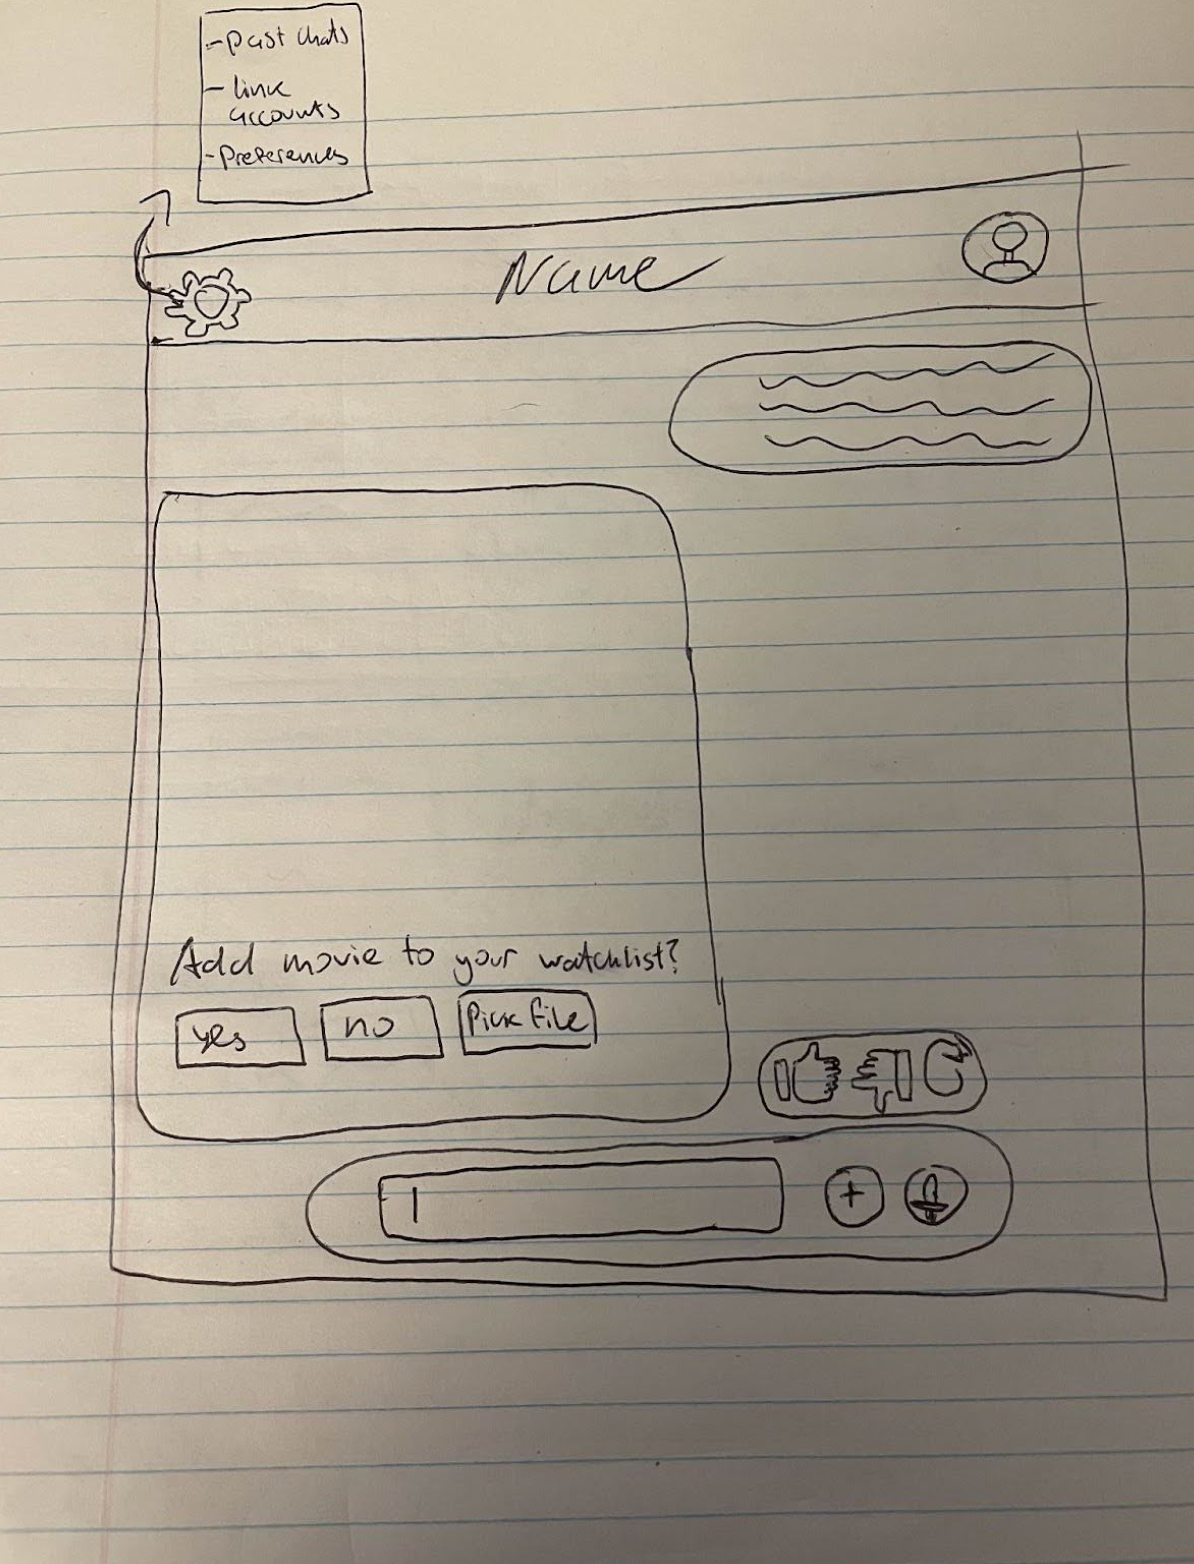 - past chats
- link
accounts
- Preferences
Name
Add movie to your watchlist?
yes
no
Pick file
+